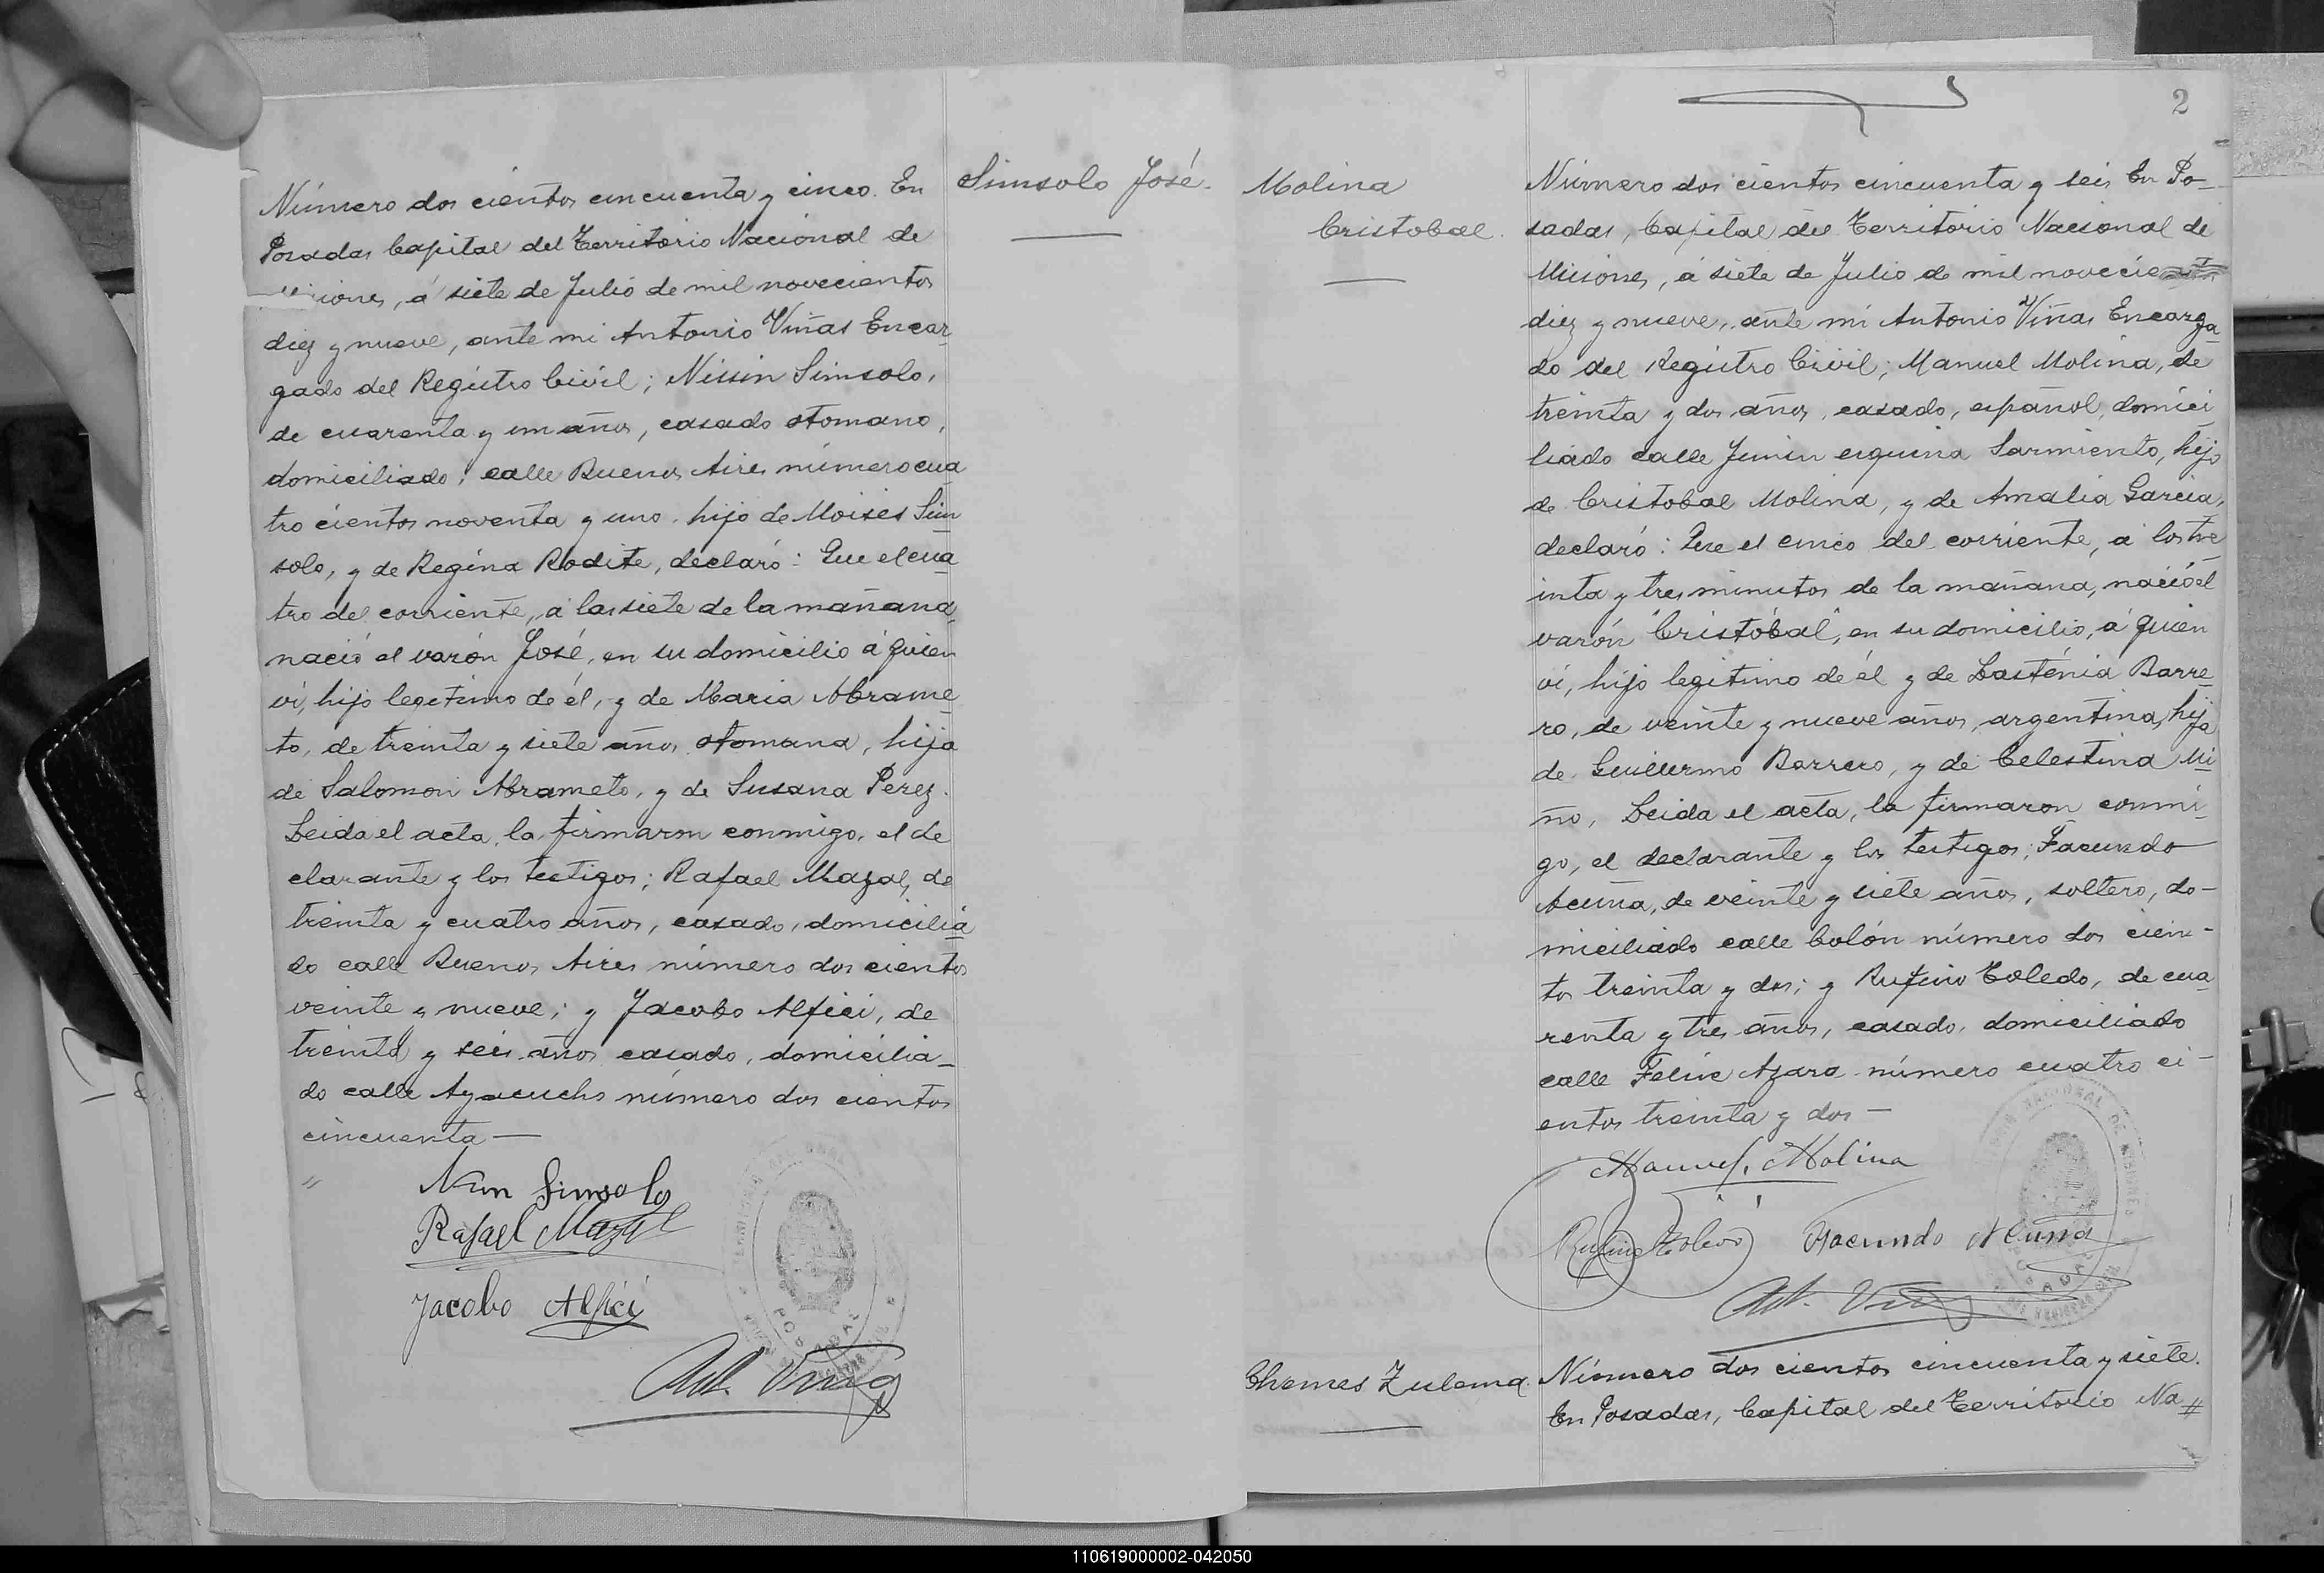 Número dos cientos cincuenta y cinco. En
Posadas Capital del Territorio Nacional de
Misiones, á siete de Julio de mil novecientos
diez y nueve, ante mi Antonio Viñas Encar-
gado del Registro Civil; Nissin Simsolo,
de cuarenta y un años, casado otomano,
domiciliado: calle Buenos Aires número cua
tro cientos noventa y uno, hijo de Moisés Sim
solo, y de Regina Rodite, declaró: Que el cua
tro del corriente, á las siete de la mañana,
nació el varón José, en su domicilio á quien
ví, hijo legitimo de él, y de Maria Abrame
to, de treinta y siete años otomana, hija
de Salomon Abrameto, y de Susana Perez.
Leida el acta, la firmaron conmigo, el de
clarante y los testigos; Rafael Mazal, de
treinta y cuatro años, casado, domicilia
do calle Buenos Aires número dos cientos
veinte y nueve; y Jacobo Alfici, de
treinta y seis años casado, domicilia-
do calle Ayacucho número dos cientos
cincuenta —
Simsolo
Rafael Mazal
Jacobo Alfici
Ant. Viñas
Simsolo José.
2
Molina
Cristobal.
Número dos cientos cincuenta y seis En Po-
sadas, Capital del Territorio Nacional de
Misiones, á siete de Julio de mil novecie
diez y nueve, ante mi Antonio Viñas Encarga
do del Registro Civil; Manuel Molina, de
treinta y dos años, casado, español, domici
liado calle Junin esquina Sarmiento, hijo
de Cristobal Molina, y de Amalia Garcia,
declaró: Que el cinco del corriente, á los tre
inta y tres minutos de la mañana, nació el
varón "Cristóbal", en su domicilio, á quien
ví, hijo legitimo de él y de Lasténia Barre
ro, de veinte y nueve años, argentina, hija
de Guillermo Barrero, y de Celestina Mi
ño, Leida el acta, la firmaron conmi-
go, el declarante y los testigos; Facundo
Acuña, de veinte y siete años, soltero, do-
miciliado calle Colón número dos cien-
tos treinta y dos; y Rufino Toledo, de cua
renta y tres años, casado, domiciliado
calle Felix Azara número cuatro ci-
entos treinta y dos —
Manuel Molina
Rufino Toledo Facundo Acuña
Ant. Viñas
Chemes Zulema.
Número dos cientos cincuenta y siete.
En Posadas, Capital del Territorio Na
110619000002-042050